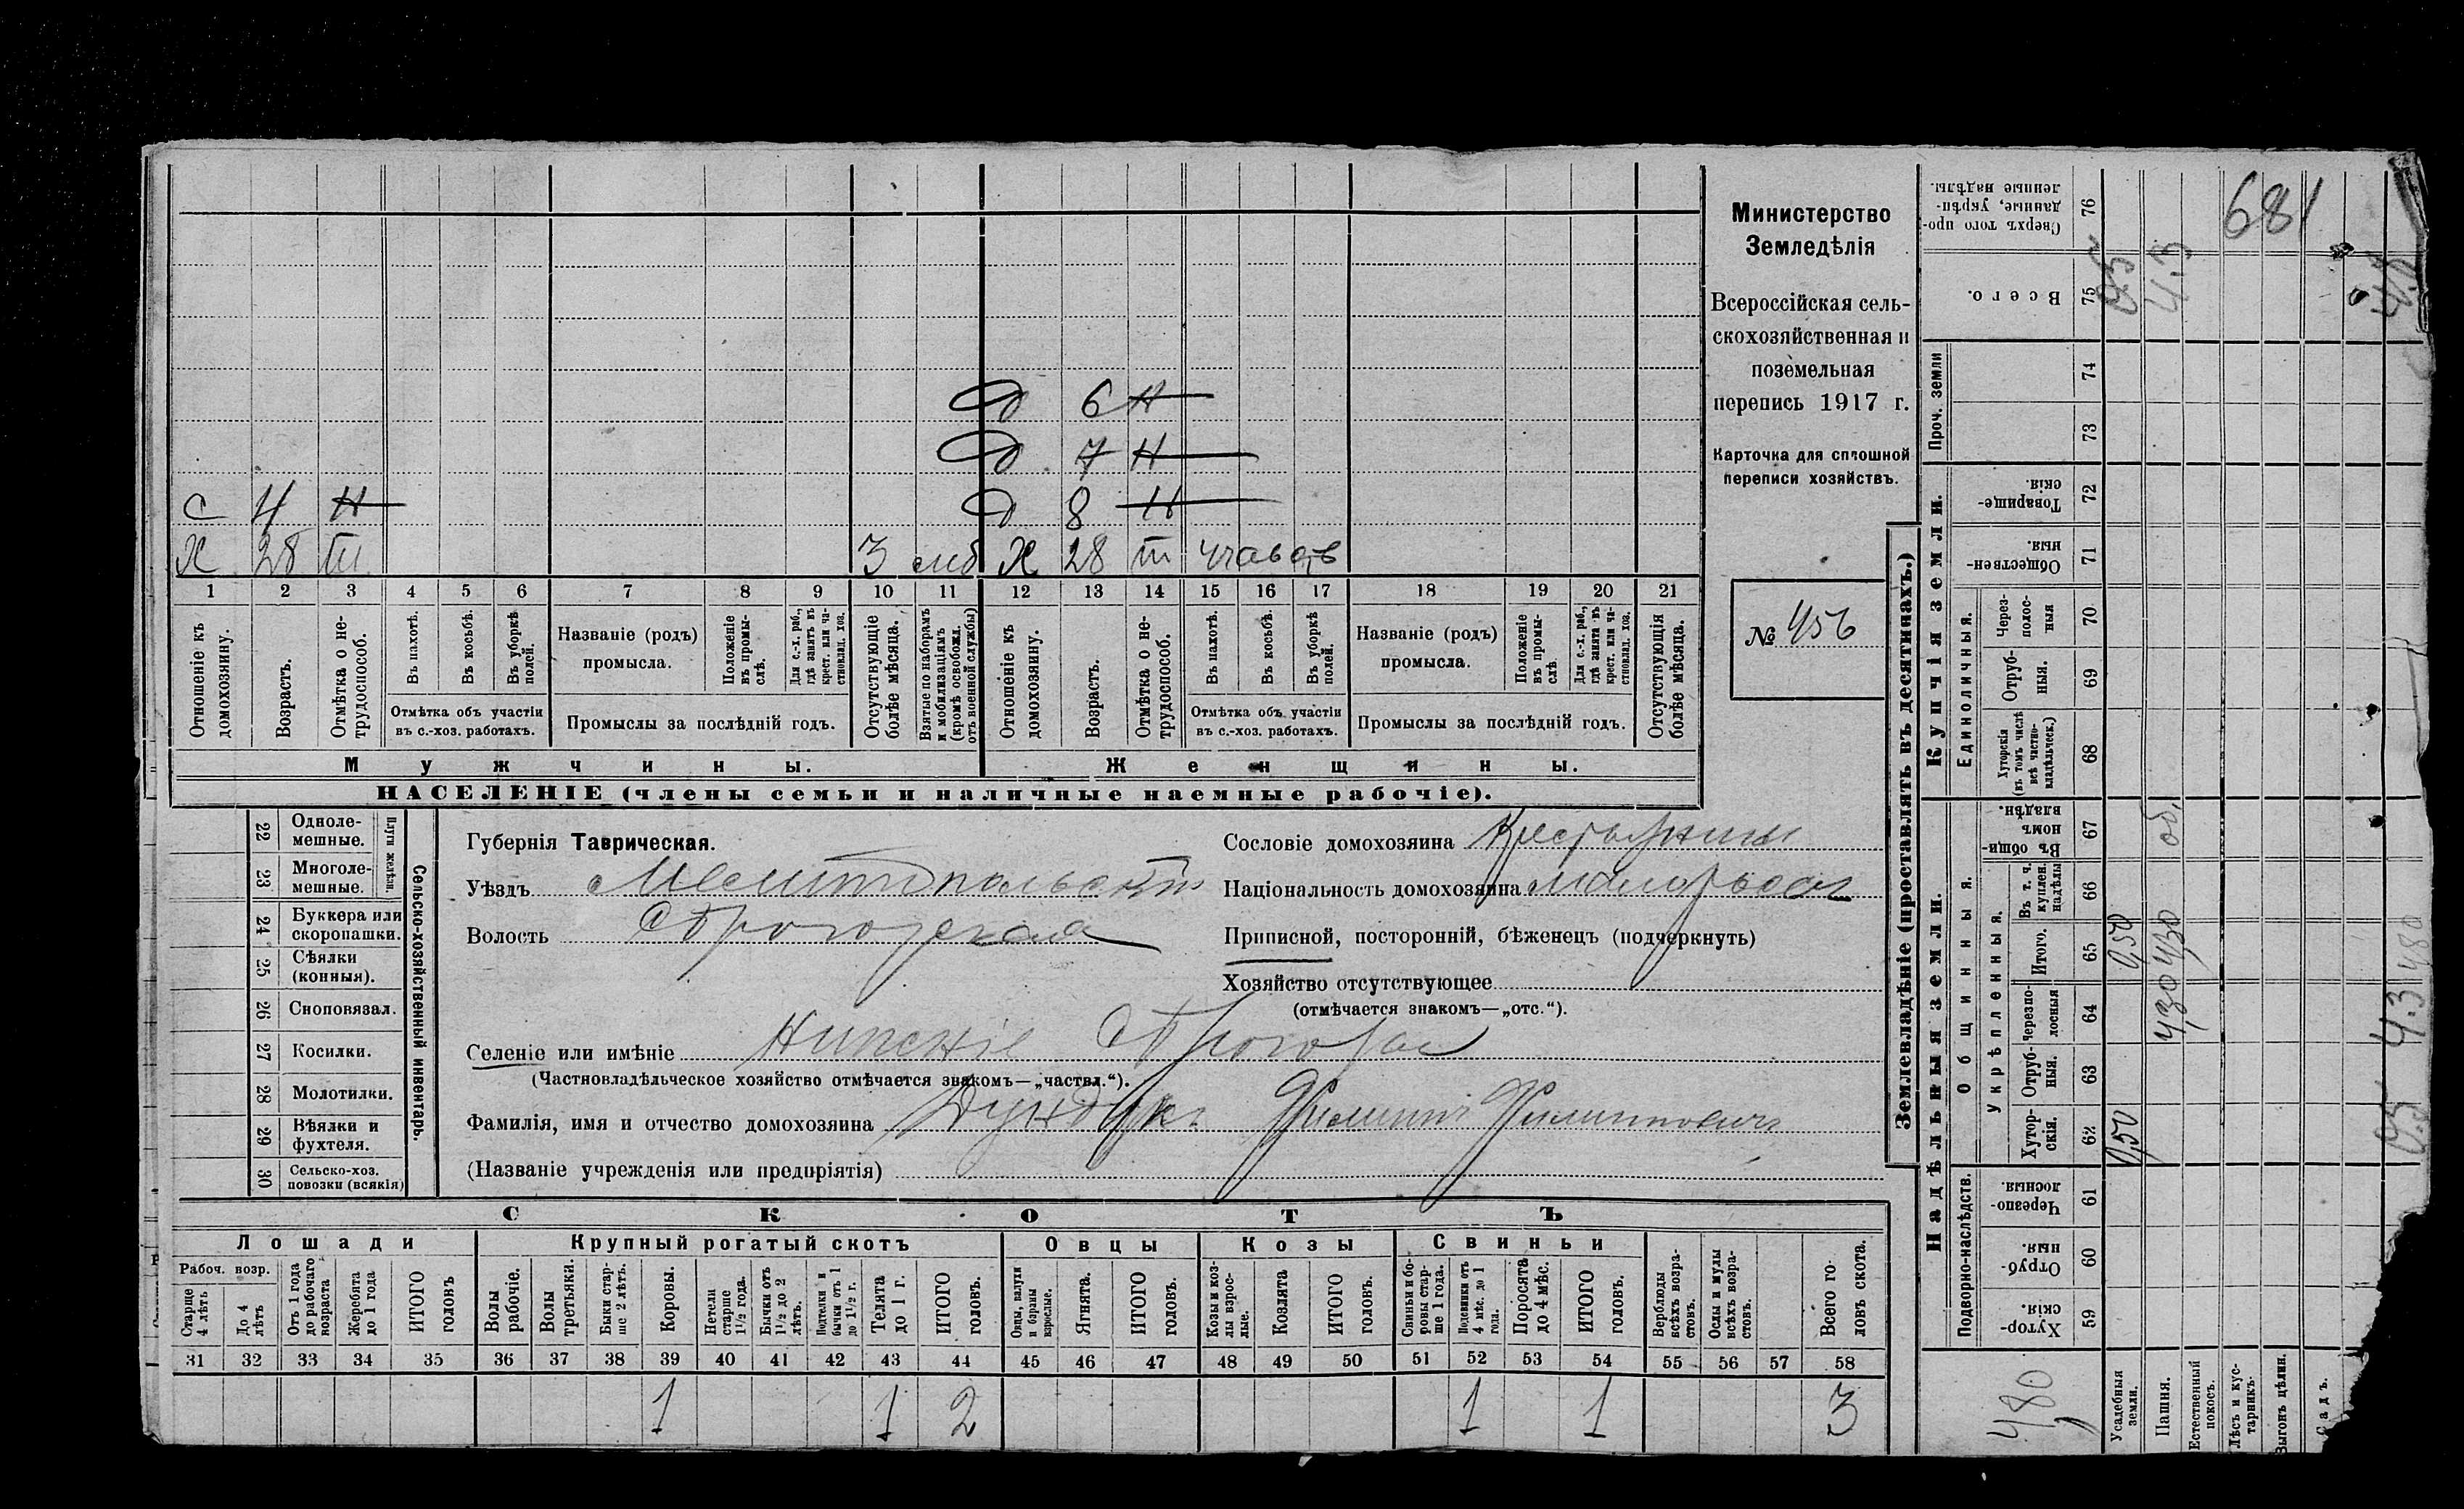 Министерство
Земледѣлія
Всероссійская сель-
скохозяйственная и
поземельная
перепись 1917 г.
Карточка для сплошной
переписи хозяйствъ.
№ 456
681
Д 6 Н
Д 7 Н
С 4 Н Д 8 Н
Х 28 3 Х 28
1 2 3 4 5 6 7 8 9 10 11 12 13 14 15 16 17 18 19 20 21
Отношеніе къ домохозяину.
Возрастъ.
Отмѣтка о не-трудоспособ.
Въ пахотѣ.
Въ косьбѣ.
Въ уборкѣ полей.
Отмѣтка объ участіи
въ с.-хоз. работахъ.
Названіе (родъ)
промысла.
Положеніе въ промы-слѣ.
Для с.-х. раб., гдѣ занятъ въ крест. или ча-стновлад. хоз.
Промыслы за послѣдній годъ.
Отсутствующіе болѣе мѣсяца.
Взятые по наборамъ и мобилизаціямъ (кромѣ освобожд. отъ военной службы)
Отношеніе къ домохозяину.
Возрастъ.
Отмѣтка о не-трудоспособ.
Въ пахотѣ.
Въ косьбѣ.
Въ уборкѣ полей.
Отмѣтка объ участіи
въ с.-хоз. работахъ.
Названіе (родъ)
промысла.
Положеніе въ промы-слѣ.
Для с.-х. раб., гдѣ занята въ крест. или ча-стновлад. хоз.
Промыслы за послѣдній годъ.
Отсутствующія болѣе мѣсяца.
Мужчины. Женщины.
НАСЕЛЕНІЕ (члены семьи и наличные наемные рабочіе).
Сельско-хозяйственный инвентарь.
Плуги желѣзн.
22 Одноле-мешные.
23 Многоле-мешные.
24 Буккера или скоропашки.
25 Сѣялки (конныя).
26 Сноповязал.
27 Косилки.
28 Молотилки.
29 Вѣялки и фухтеля.
30 Сельско-хоз. повозки (всякія)
Губернія Таврическая.
Уѣздъ Мелитопольскій
Волость
Сословіе домохозяина
Національность домохозяина малороссъ
Приписной, посторонній, бѣженецъ (подчеркнуть)
Хозяйство отсутствующее
(отмѣчается знакомъ—„отс.“).
Селеніе или имѣніе Нижніе
(Частновладѣльческое хозяйство отмѣчается знакомъ—„частвл.“).
Фамилія, имя и отчество домохозяина Дундукъ Филиппъ Филипповичъ
(Названіе учрежденія или предпріятія)
СКОТЪ
Лошади Крупный рогатый скотъ Овцы Козы Свиньи
Рабоч. возр.
Старще 4 лѣтъ
До 4 лѣтъ
Отъ 1 года до рабочаго возраста
Жеребята до 1 года
ИТОГО головъ
Волы рабочіе.
Волы третьяки.
Быки стар-ше 2 лѣтъ.
Коровы.
Нетели старше 1½ года.
Бычки отъ 1½ до 2 лѣтъ.
Подтелки и бычки отъ 1 до 1½ г.
Телята до 1 г.
ИТОГО головъ.
Овцы, валухи и бараны взрослые.
Ягнята.
ИТОГО головъ.
Козы и коз-лы взрос-лые.
Козлята.
ИТОГО головъ.
Свиньи и бо-ровы стар-ше 1 года.
Подсвинки отъ 4 мѣс. до 1 года.
Поросята до 4 мѣс.
ИТОГО головъ.
Верблюды всѣхъ возра-стовъ.
Ослы и мулы всѣхъ возра-стовъ.
Всего го-ловъ скота.
31 32 33 34 35 36 37 38 39 40 41 42 43 44 45 46 47 48 49 50 51 52 53 54 55 56 57 58
1 1 2 1 1 3
Землевладѣніе (проставлять въ десятинахъ.)
Надѣльныя земли. Купчія земли.
Подворно-наслѣдств. Общинныя. Единоличныя. Проч. земли
Укрѣпленныя.
Хутор-скія. 59
Отруб-ныя. 60
Черезпо-лосныя. 61
Хутор-скія. 62
Отруб-ныя. 63
Черезпо-лосныя 64
Итого. 65
Въ т. ч. куплен. надѣлы 66
Въ общи-номъ владѣн. 67
Хуторскія (въ томъ числѣ всѣ частно-владѣльческ.) 68
Отруб-ныя. 69
Через-полос-ныя 70
Обществен-ныя. 71
Товарище-скія. 72
73
74
Всего. 75
Сверхъ того про-данные, укрѣп-ленные надѣлы. 76
480
Усадебныя земли. 0,50 0,50
Пашня. 4,30 4,30 об. 4.3
Естественный покосъ.
Лѣсъ и кус-тарникъ.
Выгонъ цѣлин.
Садъ.
0.5 4.3 480